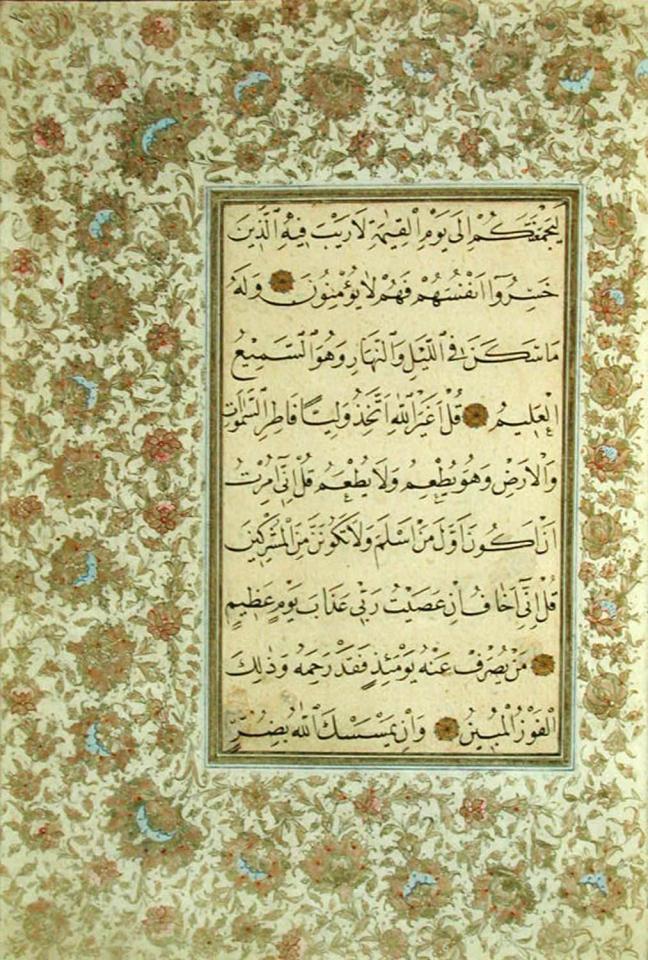 لَيَجْمَعَنَّكُمْ اِلٰى يَوْمِ الْقِيٰمَةِ لَا رَيْبَ فِيهِ اَلَّذِينَ
خَسِرُوٓا اَنْفُسَهُمْ فَهُمْ لَا يُؤْمِنُونَ وَلَهُ
مَا سَكَنَ فِى الَّيْلِ وَالنَّهَارِ وَهُوَ السَّمِيعُ
الْعَلِيمُ قُلْ اَغَيْرَ اللّٰهِ اَتَّخِذُ وَلِيًّا فَاطِرِ السَّمٰوَاتِ
وَالْاَرْضِ وَهُوَ يُطْعِمُ وَلَا يُطْعَمُ قُلْ اِنِّٓى اُمِرْتُ
اَنْ اَكُونَ اَوَّلَ مَنْ اَسْلَمَ وَلَا تَكُونَنَّ مِنَ الْمُشْرِكِينَ
قُلْ اِنِّٓى اَخَافُ اِنْ عَصَيْتُ رَبِّى عَذَابَ يَوْمٍ عَظِيمٍ
مَنْ يُصْرَفْ عَنْهُ يَوْمَئِذٍ فَقَدْ رَحِمَهُ وَذٰلِكَ
الْفَوْزُ الْمُبِينُ وَاِنْ يَمْسَسْكَ اللّٰهُ بِضُرٍّ